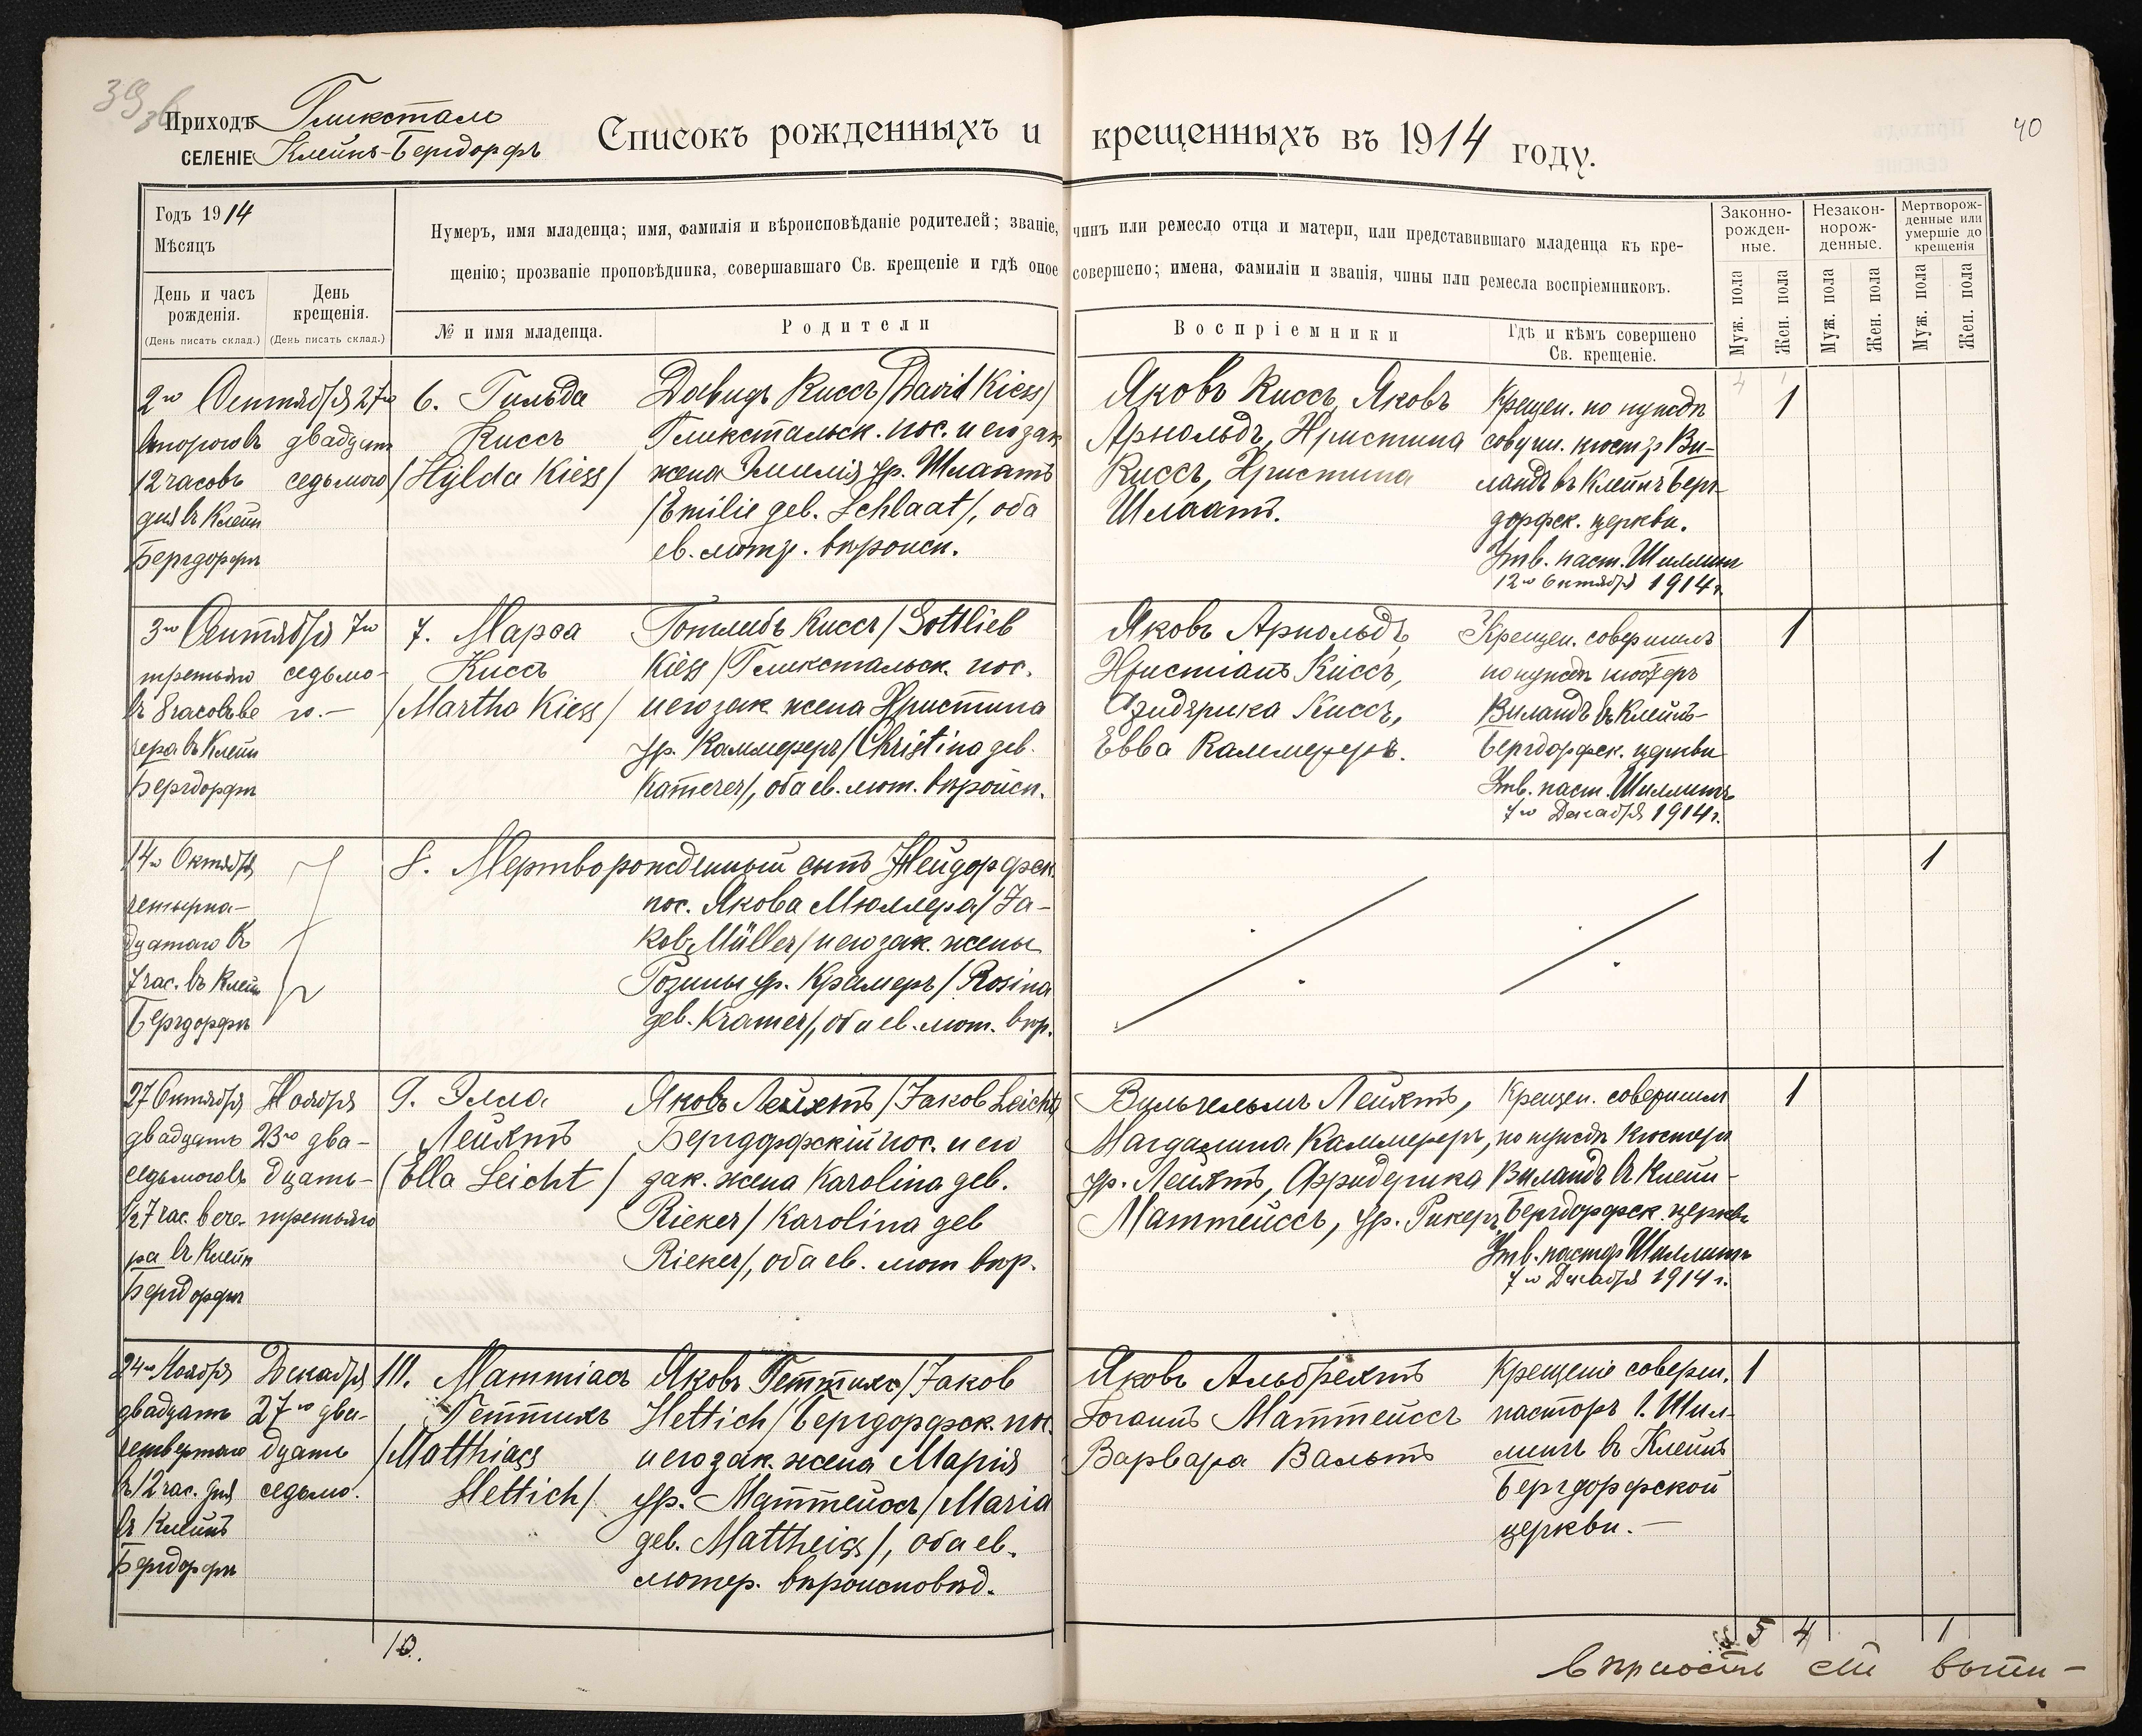 39
Приходъ Гликсталь
СЕЛЕНІЕ Клейнъ-Бергдорфъ
Списокъ рожденныхъ и крещенныхъ въ 1914 году.
40
Годъ 1914
Мѣсяцъ
День и часъ рожденія.
(День писать склад.)
День крещенія.
(День писать склад.)
Нумеръ, имя младенца; имя, фамилія и вѣроисповѣданіе родителей; званіе, чинъ или ремесло отца и матери, или представившаго младенца къ кре-
щенію; прозваніе проповѣдника, совершавшаго Св. крещеніе и гдѣ оное совершено; имена, фамиліи и званія, чины или ремесла воспріемниковъ.
№ и имя младенца.
Родители
Воспріемники
Гдѣ и кѣмъ совершено
Св. крещеніе.
Законно-
рожден-
ные.
Незакон-
норож-
денные.
Мертворож-
денные или
умершіе до
крещенія
Муж. пола
Жен. пола
Муж. пола
Жен. пола
Муж. пола
Жен. пола
2го Сентября 27го
второго въ
12 часовъ
дня въ Клейн
Бергдорфѣ
двадцать
седьмого
6. Гильда
Киссъ
/Hylda Kiess/
Давидъ Киссъ /David Kiess/
Гликстальск. пос. и его зак
жена Эмилія ур. Шлаатъ
/Emilie geb. Schlaat/, оба
ев. лютр. вѣроисп.
Яковъ Киссъ, Яковъ
Арнольдъ, Христина
Киссъ, Христина
Шлаатъ.
Крещен. по нуждѣ
совуш. кюстр Ви-
ландъ въ Клейнъ Берг-
дорфск. церкви.
Утв. паст. Шиллинг
12го Октября 1914 г.
1
3го Сентября 7го
третьяго
въ 8 часовъ ве
чера въ Клейн
Бергдорфѣ
седьмо-
го.—
7. Марѳа
Киссъ
/Martha Kiess/
Готлибъ Киссъ /Gottlieb
Kiess/ Гликстальск. пос.
и его зак жена Христина
ур. Каммереръ /Christina geb.
Kamerer/, оба ев. лют. вѣроисп.
Яковъ Арнольдъ,
Христіанъ Киссъ,
Фридрика Киссъ,
Евва Каммереръ.
Крещен. совершилъ
по нуждѣ кюстеръ
Виландъ въ Клейнъ-
Бергдорфск. церкви
Утв. паст. Шиллингъ
7го Декабря 1914 г.
1
14го Октября
четырна-
дцатаго въ
7 час. въ Клейн
Бергдорфѣ
8. Мертворожденный сынъ Нейдорфск.
пос. Якова Мюллера /Ja-
kob Müller/ и его зак. жены
Розины ур. Крамеръ /Rosina
geb. Kramer/, оба ев. лют. вѣр.
1
27 Октября
двадцать
седьмого въ
½7 час. вече-
ра въ Клейн
Бергдорфѣ
Ноября
23го два-
дцать-
третьяго
9. Элла
Лейхтъ
(Ella Leicht/
Яковъ Лейхтъ /Jakob Leicht/
Бергдорфскій пос. и его
зак. жена Karolina geb.
Rieker/ Karolina geb
Rieker/, оба ев. лют вѣр.
Вильгельмъ Лейхтъ,
Магдалина Каммереръ,
ур. Лейхтъ, Фридерика
Маттейссъ, ур. Рикеръ
Крещен. совершил
по нуждѣ кюстеръ
Виландъ въ Клейн-
Бергдорфск. церкви
Утв. пастор Шиллингъ
7го Декабря 1914 г.
1
24го Ноября
двадцать
четвертаго
въ 12 час. дня
въ Клейнъ
Бергдорфѣ
Декабря
27го два-
дцать
седьмо.
10. Маттіасъ
Геттихъ
/Matthiass
Hettich/
Яковъ Геттихъ /Jakob
Hettich/ Бергдорфск. пос.
и его зак. жена Марія
ур. Маттейссъ /Maria
geb. Mattheiss/, оба ев.
лютер. вѣроисповѣд.
Яковъ Альбрехтъ
Іоганнъ Маттейссъ
Варвара Вальтъ
Крещеніе соверш.
пасторъ І. Шил-
лингъ въ Клейнъ
Бергдорфской
церкви.—
1
10.
5 4 1
вѣрность сей выпи-